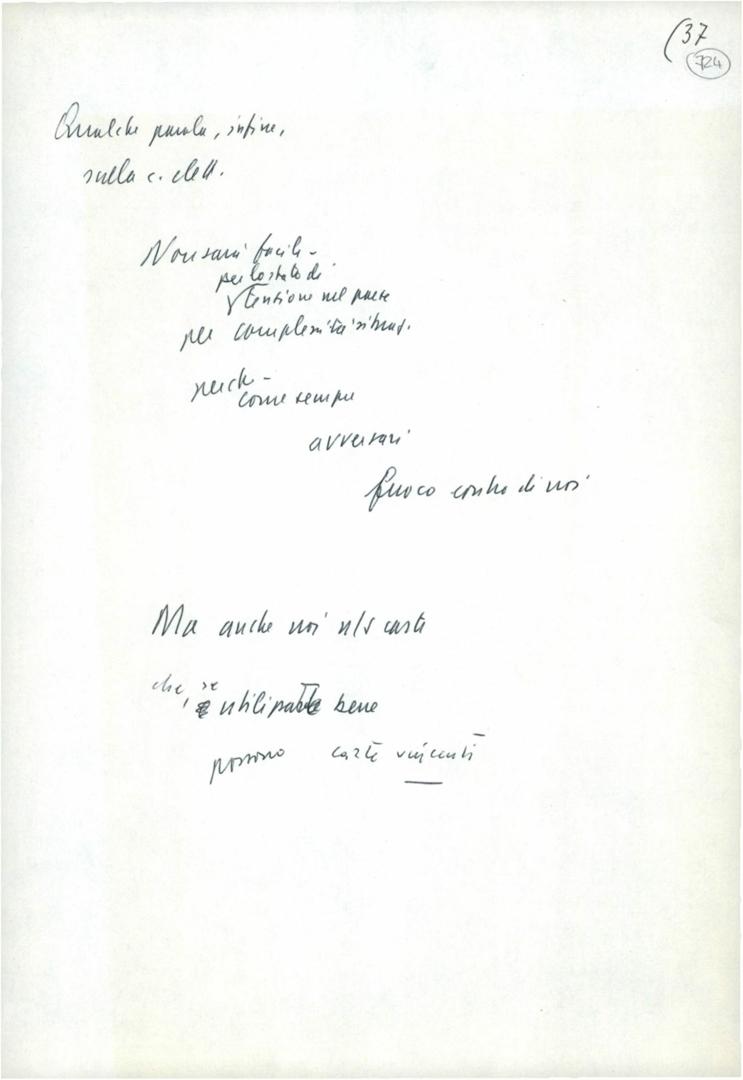 (37
724
Qualche parola, infine,
sulla c. elett.
Non sarà facile -
per lo stato di
tensione nel paese
per complessità situaz.
perché -
come sempre
avversari
fuoco contro di noi
Ma anche noi n/s carte
che, se
utilizzate bene
possono carte vincenti